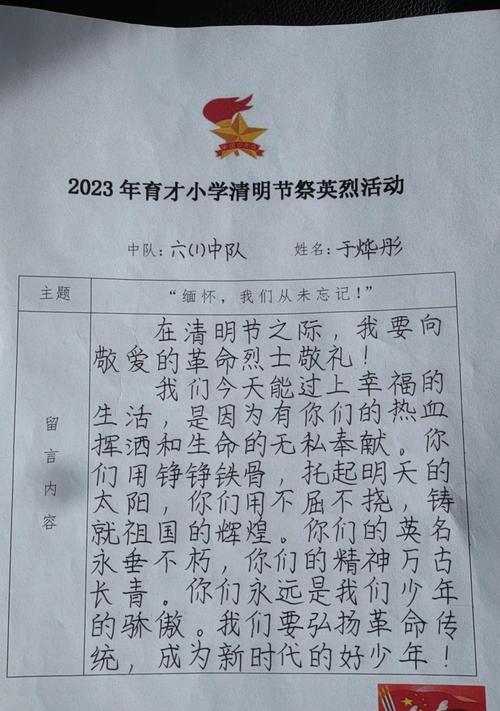 2023年育才小学清明节祭英烈活动
中队：六(1)中队 姓名：于烨彤
主题 “缅怀，我们从未忘记！”
留言内容
在清明节之际，我要向
敬爱的革命烈士敬礼！
我们今天能过上幸福的
生活，是因为有你们的热血
挥洒和生命的无私奉献。你
们用铮铮铁骨，托起明天的
太阳，你们用不屈不挠，铸
就祖国的辉煌。你们的英名
永垂不朽，你们的精神万古
长青。你们永远是我们少年
的骄傲。我们要弘扬革命传
统，成为新时代的好少年！